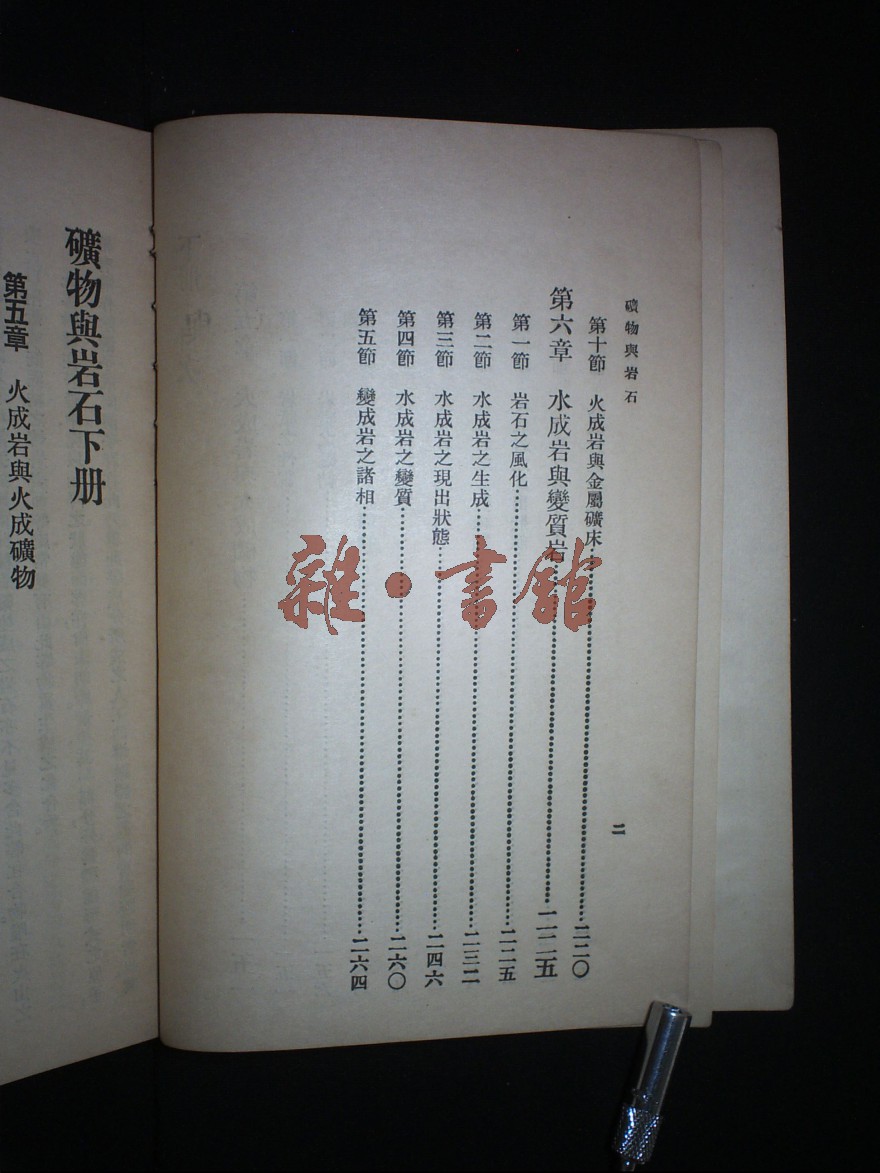 礦物與岩石
二
第十節 火成岩與金屬礦床……二二〇
第六章 水成岩與變質岩……二二五
第一節 岩石之風化……二二五
第二節 水成岩之生成……二三二
第三節 水成岩之現出狀態……二四六
第四節 水成岩之變質……二六〇
第五節 變成岩之諸相……二六四
礦物與岩石下册
第五章 火成岩與火成礦物
雜·書館